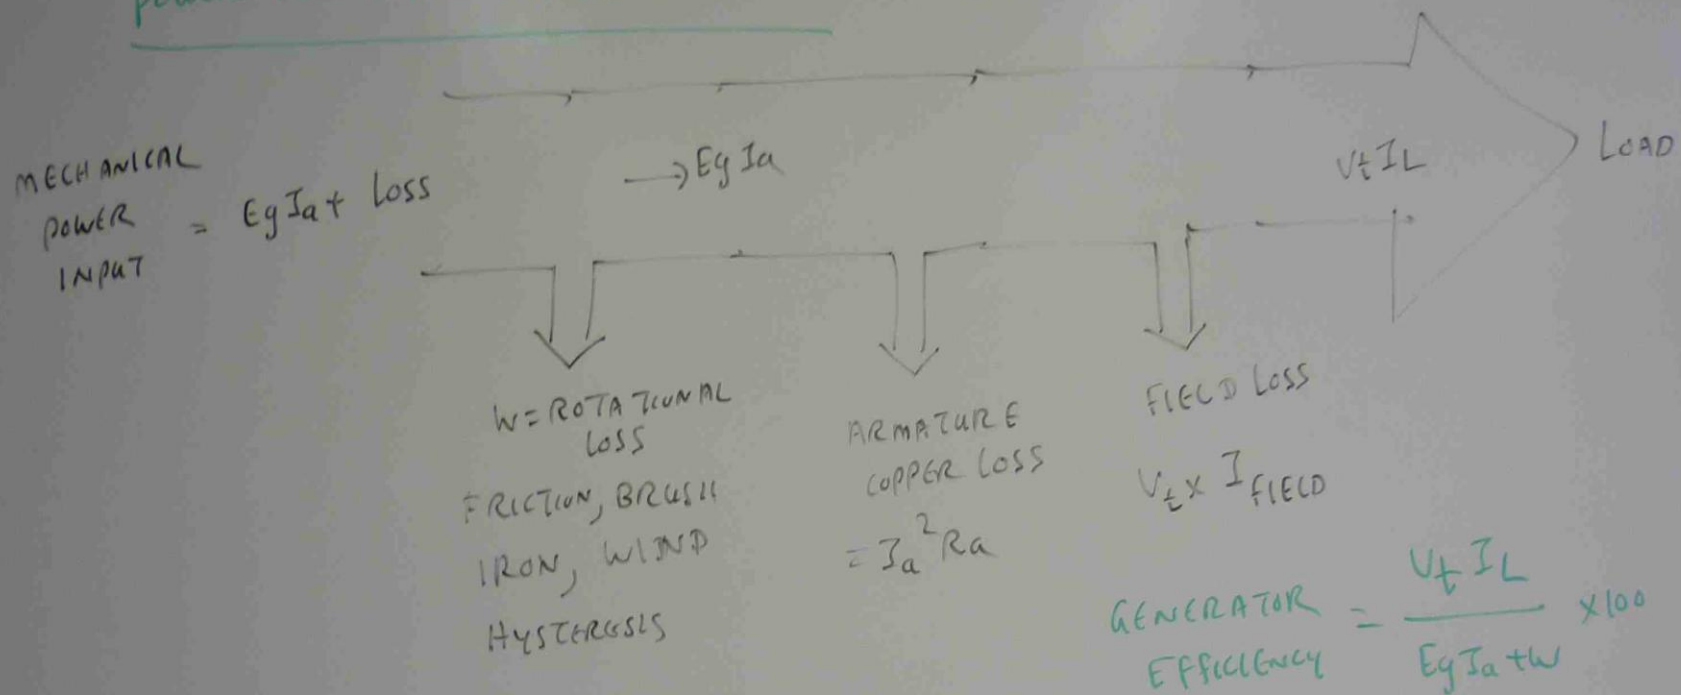 MECHANICAL
POWER = EgIa + LOSS
INPUT
→ EgIa
VtIL
LOAD
W = ROTATIONAL
LOSS
FRICTION, BRUSH
IRON, WIND
HYSTERESIS
ARMATURE
COPPER LOSS
= Ia²Ra
FIELD LOSS
Vt x IFIELD
GENERATOR
EFFICIENCY = VtIL / EgIa + W x100